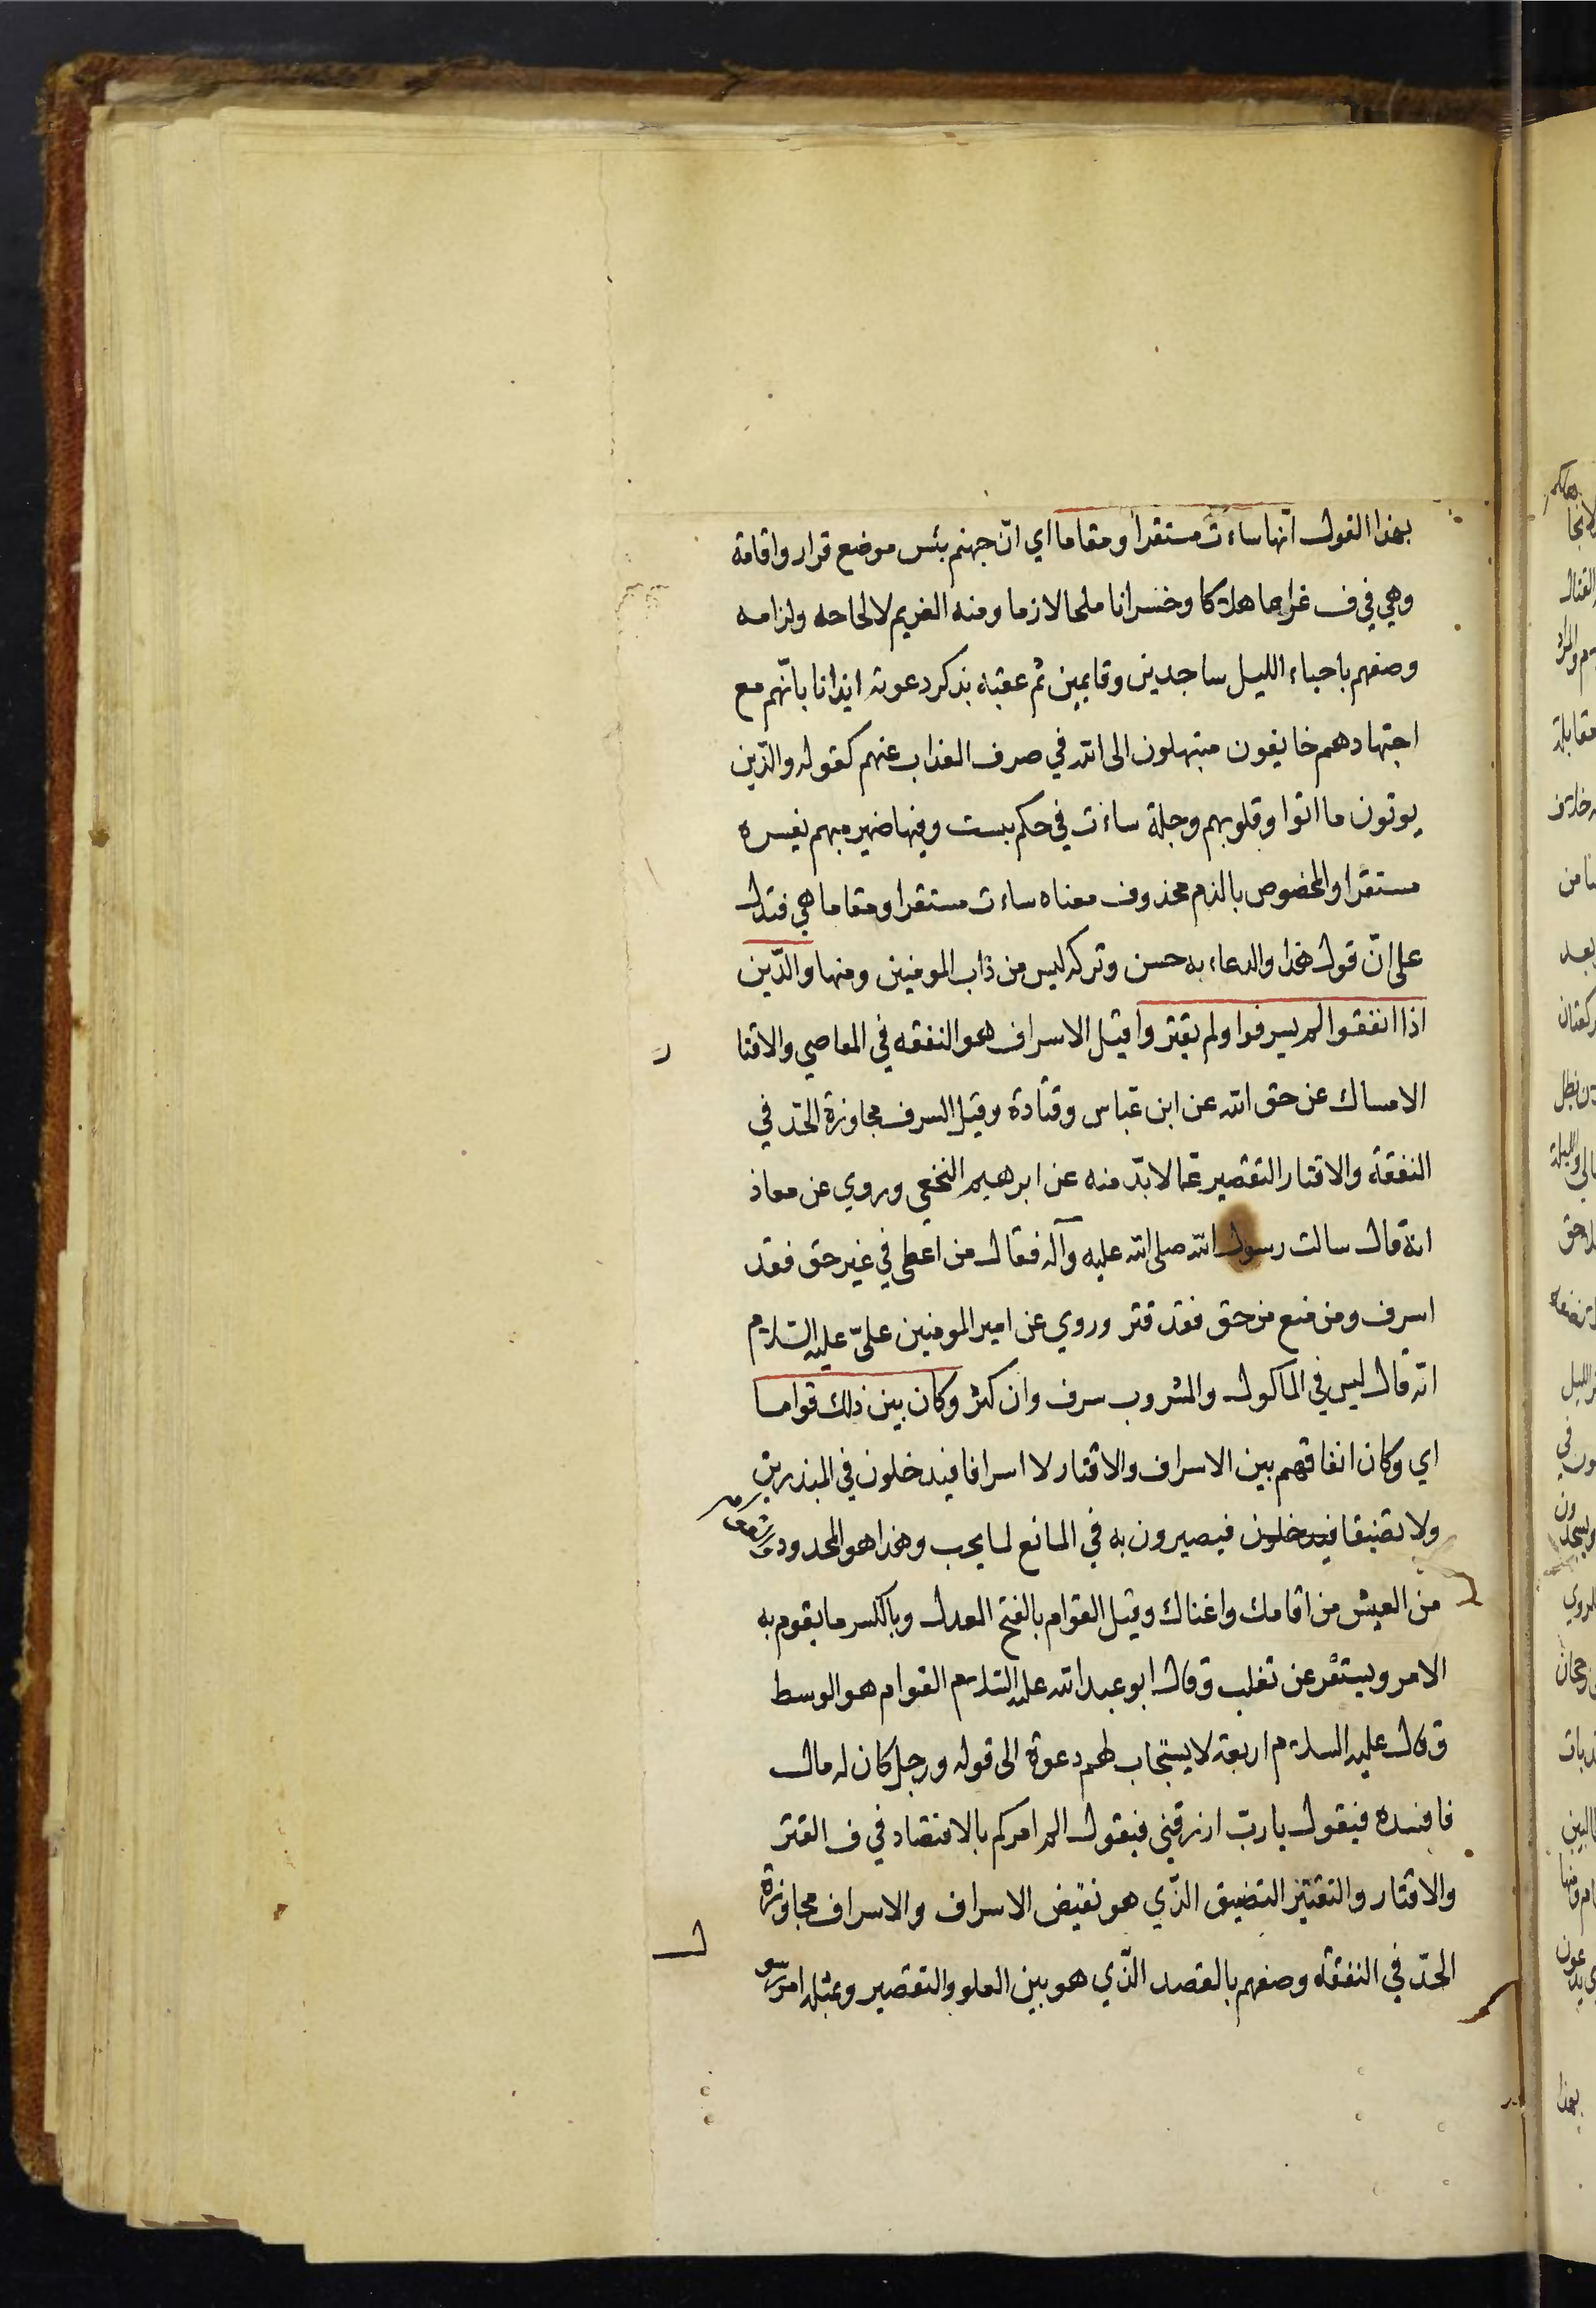 بهذا القول انّها ساءت مستقرا ومقاما اي انّ جهنم بئس موضع قرار واقامة
وهي في ف غراما هلاكا وخسرانا ملحا لازما ومنه الغريم لالحاحه ولزامه
وصفهم باحياء الليل ساجدين وقايمين ثم عقبه بذكر دعوته ايذانا بانّهم مع
اجتهادهم خايفون مبتهلون الى الله في صرف العذاب عنهم كقوله والذين
يوتون ما اتوا وقلوبهم وجلة ساءت في حكم بيست وفيها ضمير مبهم يفسره
مستقرا والمخصوص بالذم محذوف معناه ساءت مستقرا ومقاما هي فتدل
على انّ قول هذا والدعاء به حسن وتركه ليس من داب المومنين ومنها والّذين
اذا انفقوا لم يسرفوا ولم يقتروا قيل الاسراف هو النفقه في المعاصي والاقتا
ر
الامساك عن حق الله عن ابن عباس وقتادة وقيل السرف مجاوزة الحدّ في
النفقة والاقتار التقصير عمّا لا بدّ منه عن ابرهيم النخعي وروي عن معاذ
انه قال سالت رسول الله صلى الله عليه وآله فقال من اعطى في غير حق فقد
اسرف ومن منع من حق فقد قتر وروي عن امير المومنين عليّ عليه السلام
انّه قال ليس في الماكول والمشروب سرف وان كثر وكان بين ذلك قواما
اي وكان انفاقهم بين الاسراف والاقتار لا اسرافا فيدخلون في المبذرين
ولا تضيقا فيدخلون فيصيرون به في المانع لما يجب وهذا هو المحدود
من العيش من اقامك واغناك وقيل القوام بالفتح العدل وبالكسر ما يقوم به
الامر ويستقر عن تغلب وقال ابو عبد الله عليه السلام القوام هو الوسط
وقال عليه السلام اربعة لا يستجاب لهم دعوة الى قوله ورجل كان له مال
فافسده فيقول يا ربّ ارزقني فيقول الم امركم بالاقتصاد في ف القتر
والاقتار والتقتير التضيق الّذي هو نقيض الاسراف والاسراف مجاوزة
الحدّ في النفقة وصفهم بالقصد الّذي هو بين الغلو والتقصير وبمثله امر رسو
ل